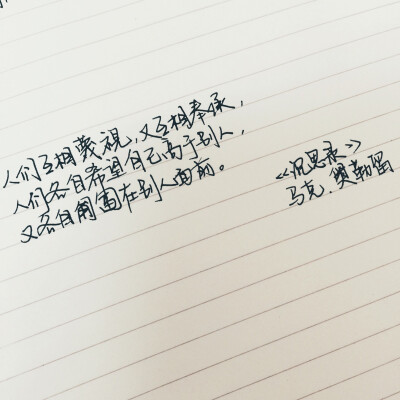 人们互相蔑视,又互相奉承,
人们各自希望自己高于别人,
又各自匍匐在别人面前。
《沉思录》
马克.奥勒留